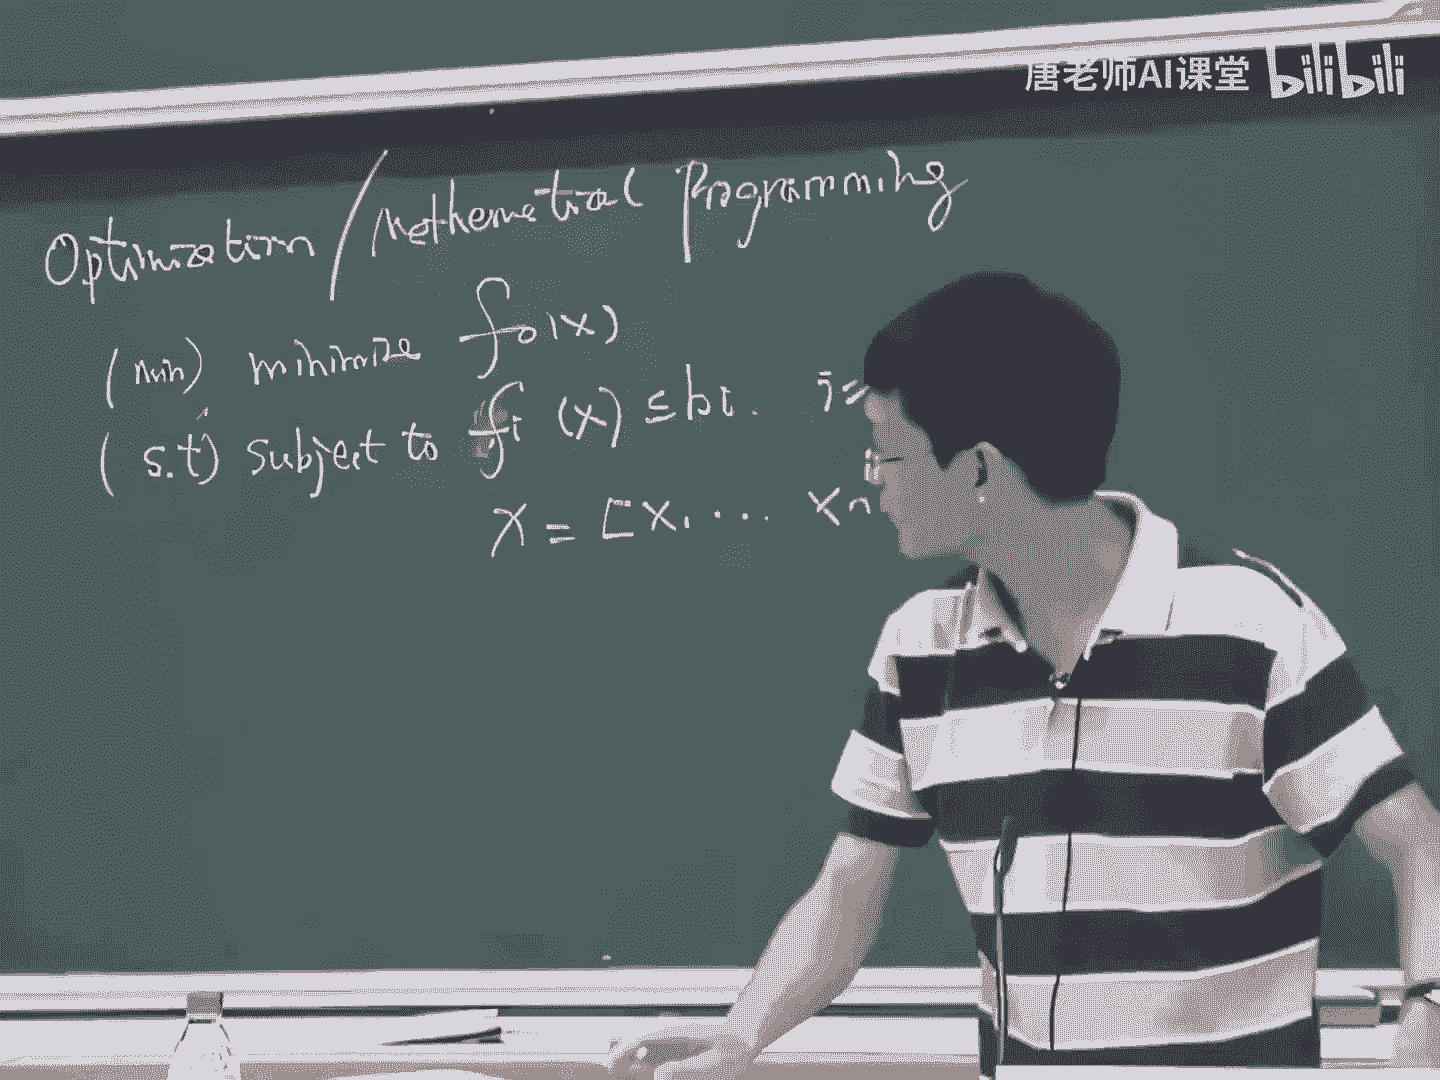 唐老师AI课堂 bilibili
Optimization / Mathematical Programming
(min) minimize f₀(x)
(s.t) subject to fᵢ (x) ≤ bᵢ. i=
x = [x₁ ... xn